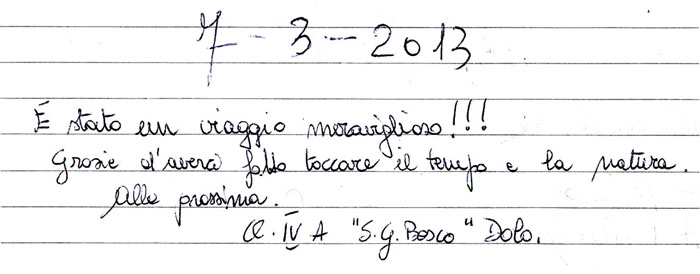 7-3-2013
È stato un viaggio meraviglioso!!!
Grazie d'averci fatto toccare il tempo e la natura.
Alla prossima.
Cl. IV A "S.G. Bosco" Dolo.